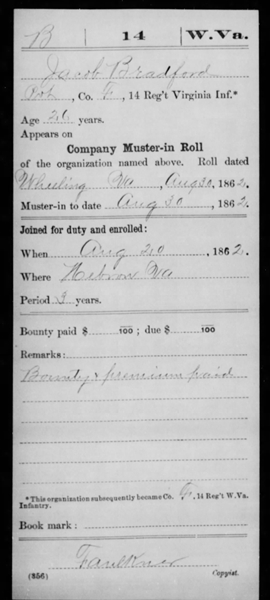 B 14 W.Va.
Jacob Bradford
Pvt., Co. F, 14 Reg't Virginia Inf.*
Age 26 years.
Appears on
Company Muster-in Roll
of the organization named above. Roll dated
Wheeling Va, Aug 30, 1862.
Muster-in to date Aug 30, 1862.
Joined for duty and enrolled:
When Aug 20, 1862.
Where Hebron Va
Period 3 years.
Bounty paid $ 100; due $ 100
Remarks:
Bounty & premium paid
*This organization subsequently became Co. F, 14 Reg't W. Va.
Infantry.
Book mark:
Faulkner
(356) Copyist.